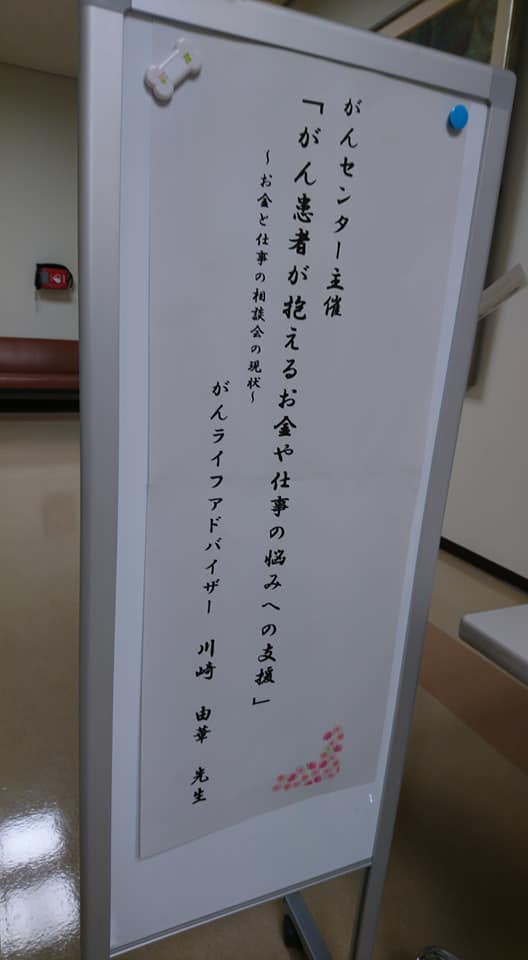 がんセンター主催
「がん患者が抱えるお金や仕事の悩みへの支援」
～お金と仕事の相談会の現状～
がんライフアドバイザー 川崎 由華 先生